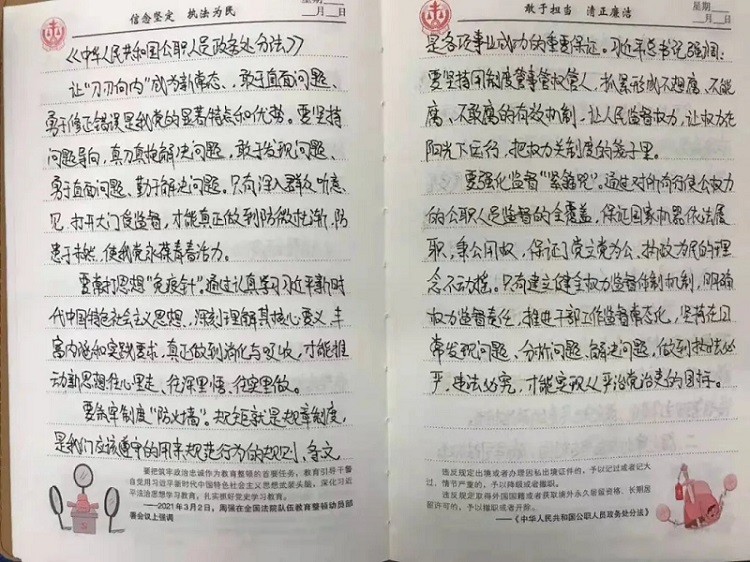 信念坚定 执法为民
星期
月 日
《中华人民共和国公职人员政务处分法》
让"刀刃向内"成为新常态、敢于直面问题、
勇于修正错误是我党的显著特点和优势。要坚持
问题导向,真刀真枪解决问题,敢于发现问题、
勇于直面问题、勤于解决问题。只有深入群众听意
见、打开大门受监督,才能真正做到防微杜渐、防
患于未然,使我党永葆青春活力。
要常打思想"免疫针"。通过认真学习习近平新时
代中国特色社会主义思想,深刻理解其核心要义、丰
富内涵和实践要求,真正做到消化与吸收,才能推
动新思想往心里走、往深里悟、往实里做。
要筑牢制度"防火墙"。规矩就是规章制度,
是我们应该遵守的用来规范行为的规则、条文
要把筑牢政治忠诚作为教育整顿的首要任务,教育引导干警
自觉用习近平新时代中国特色社会主义思想武装头脑,深化习近
平法治思想学习教育,扎实抓好党史学习教育。
——2021年3月2日,周强在全国法院队伍教育整顿动员部
署会议上强调
敢于担当 清正廉洁
星期
月 日
是各项事业成功的重要保证。习近平总书记强调:
要坚持用制度管事管权管人,抓紧形成不想腐、不能
腐、不敢腐的有效机制,让人民监督权力,让权力在
阳光下运行,把权力关制度的笼子里。
要强化监督"紧箍咒"。通过对所有行使公权力
的公职人员监督的全覆盖,保证国家机器依法履
职,秉公用权,保证了党立党为公、执政为民的理
念不动摇。只有建立健全权力监督体制机制,明确
权力监督责任,推电干部工作监督常态化,坚持在日
常发现问题、分析问题、解决问题,做到执法必
严、违法必究,才能实现从严治党治责的目标。
违反规定出境或者办理因私出境证件的,予以记过或者记大
过;情节严重的,予以降级或者撤职。
违反规定取得外国国籍或者获取境外永久居留资格、长期居
留许可的,予以撤职或者开除。
——《中华人民共和国公职人员政务处分法》